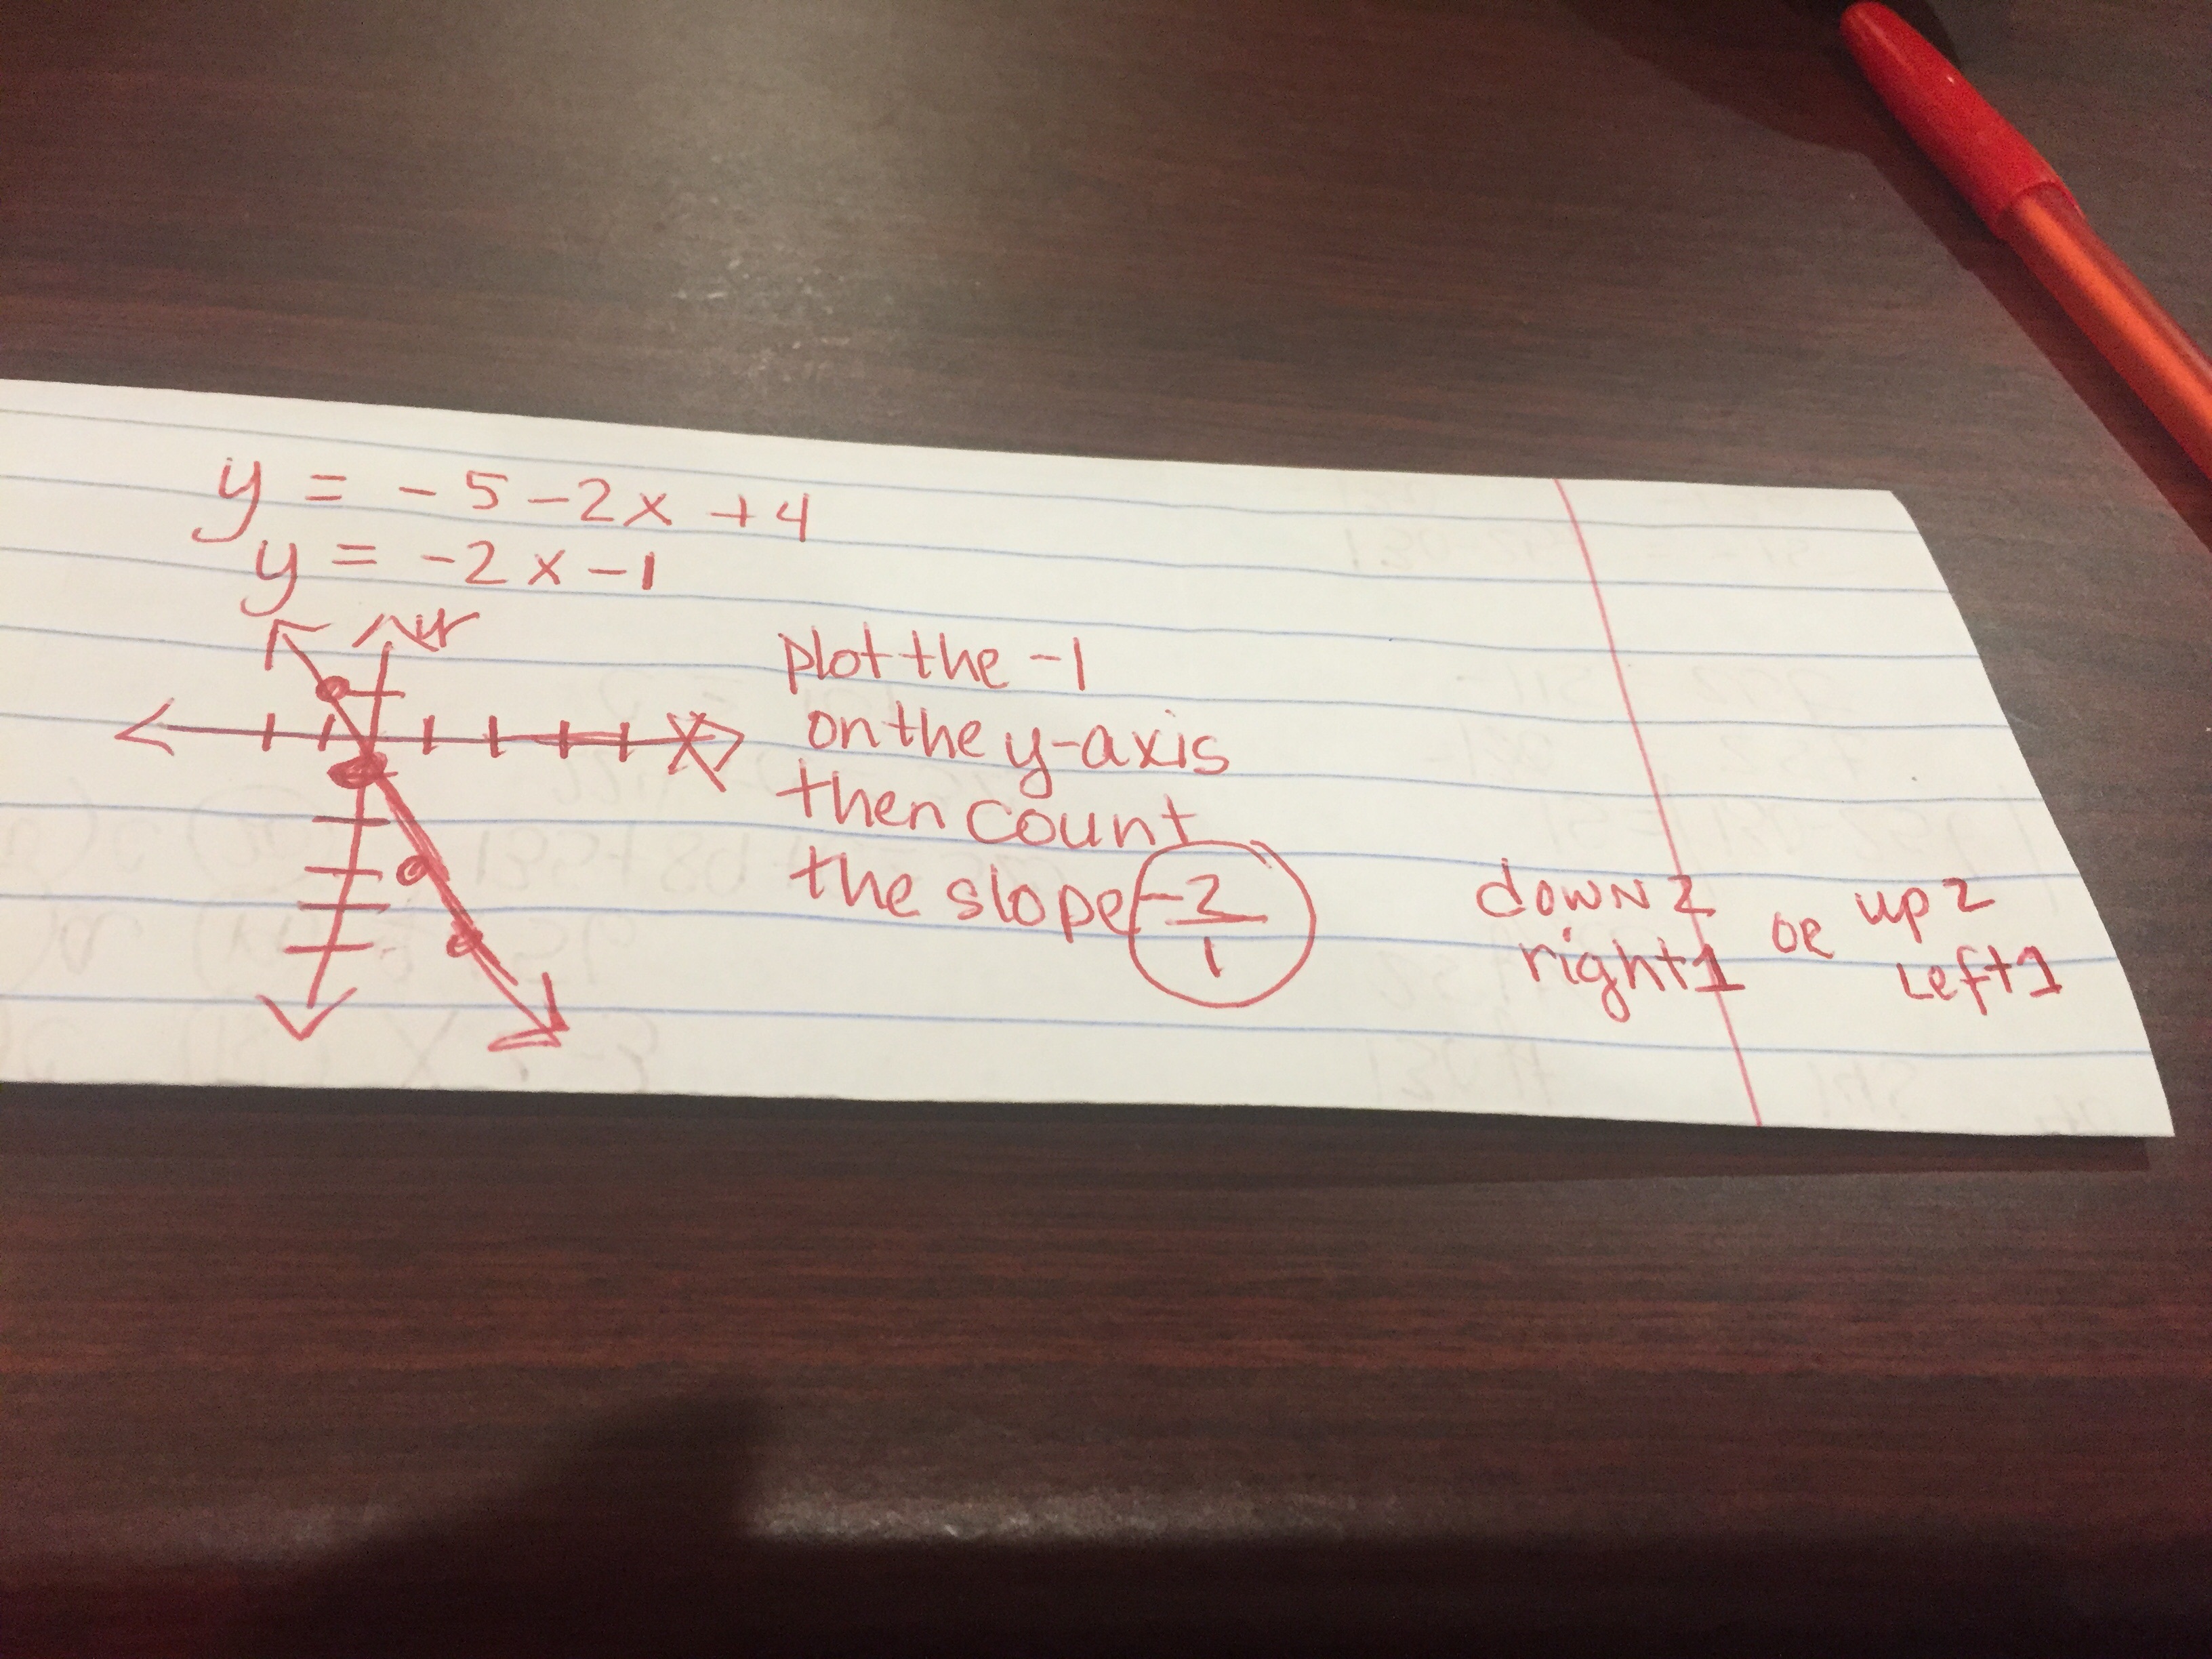 y = -5-2x+4
y = -2x-1
y
x
plot the -1
on the y-axis
then count
the slope -2/1
down 2
right 1
OR
up 2
Left 1